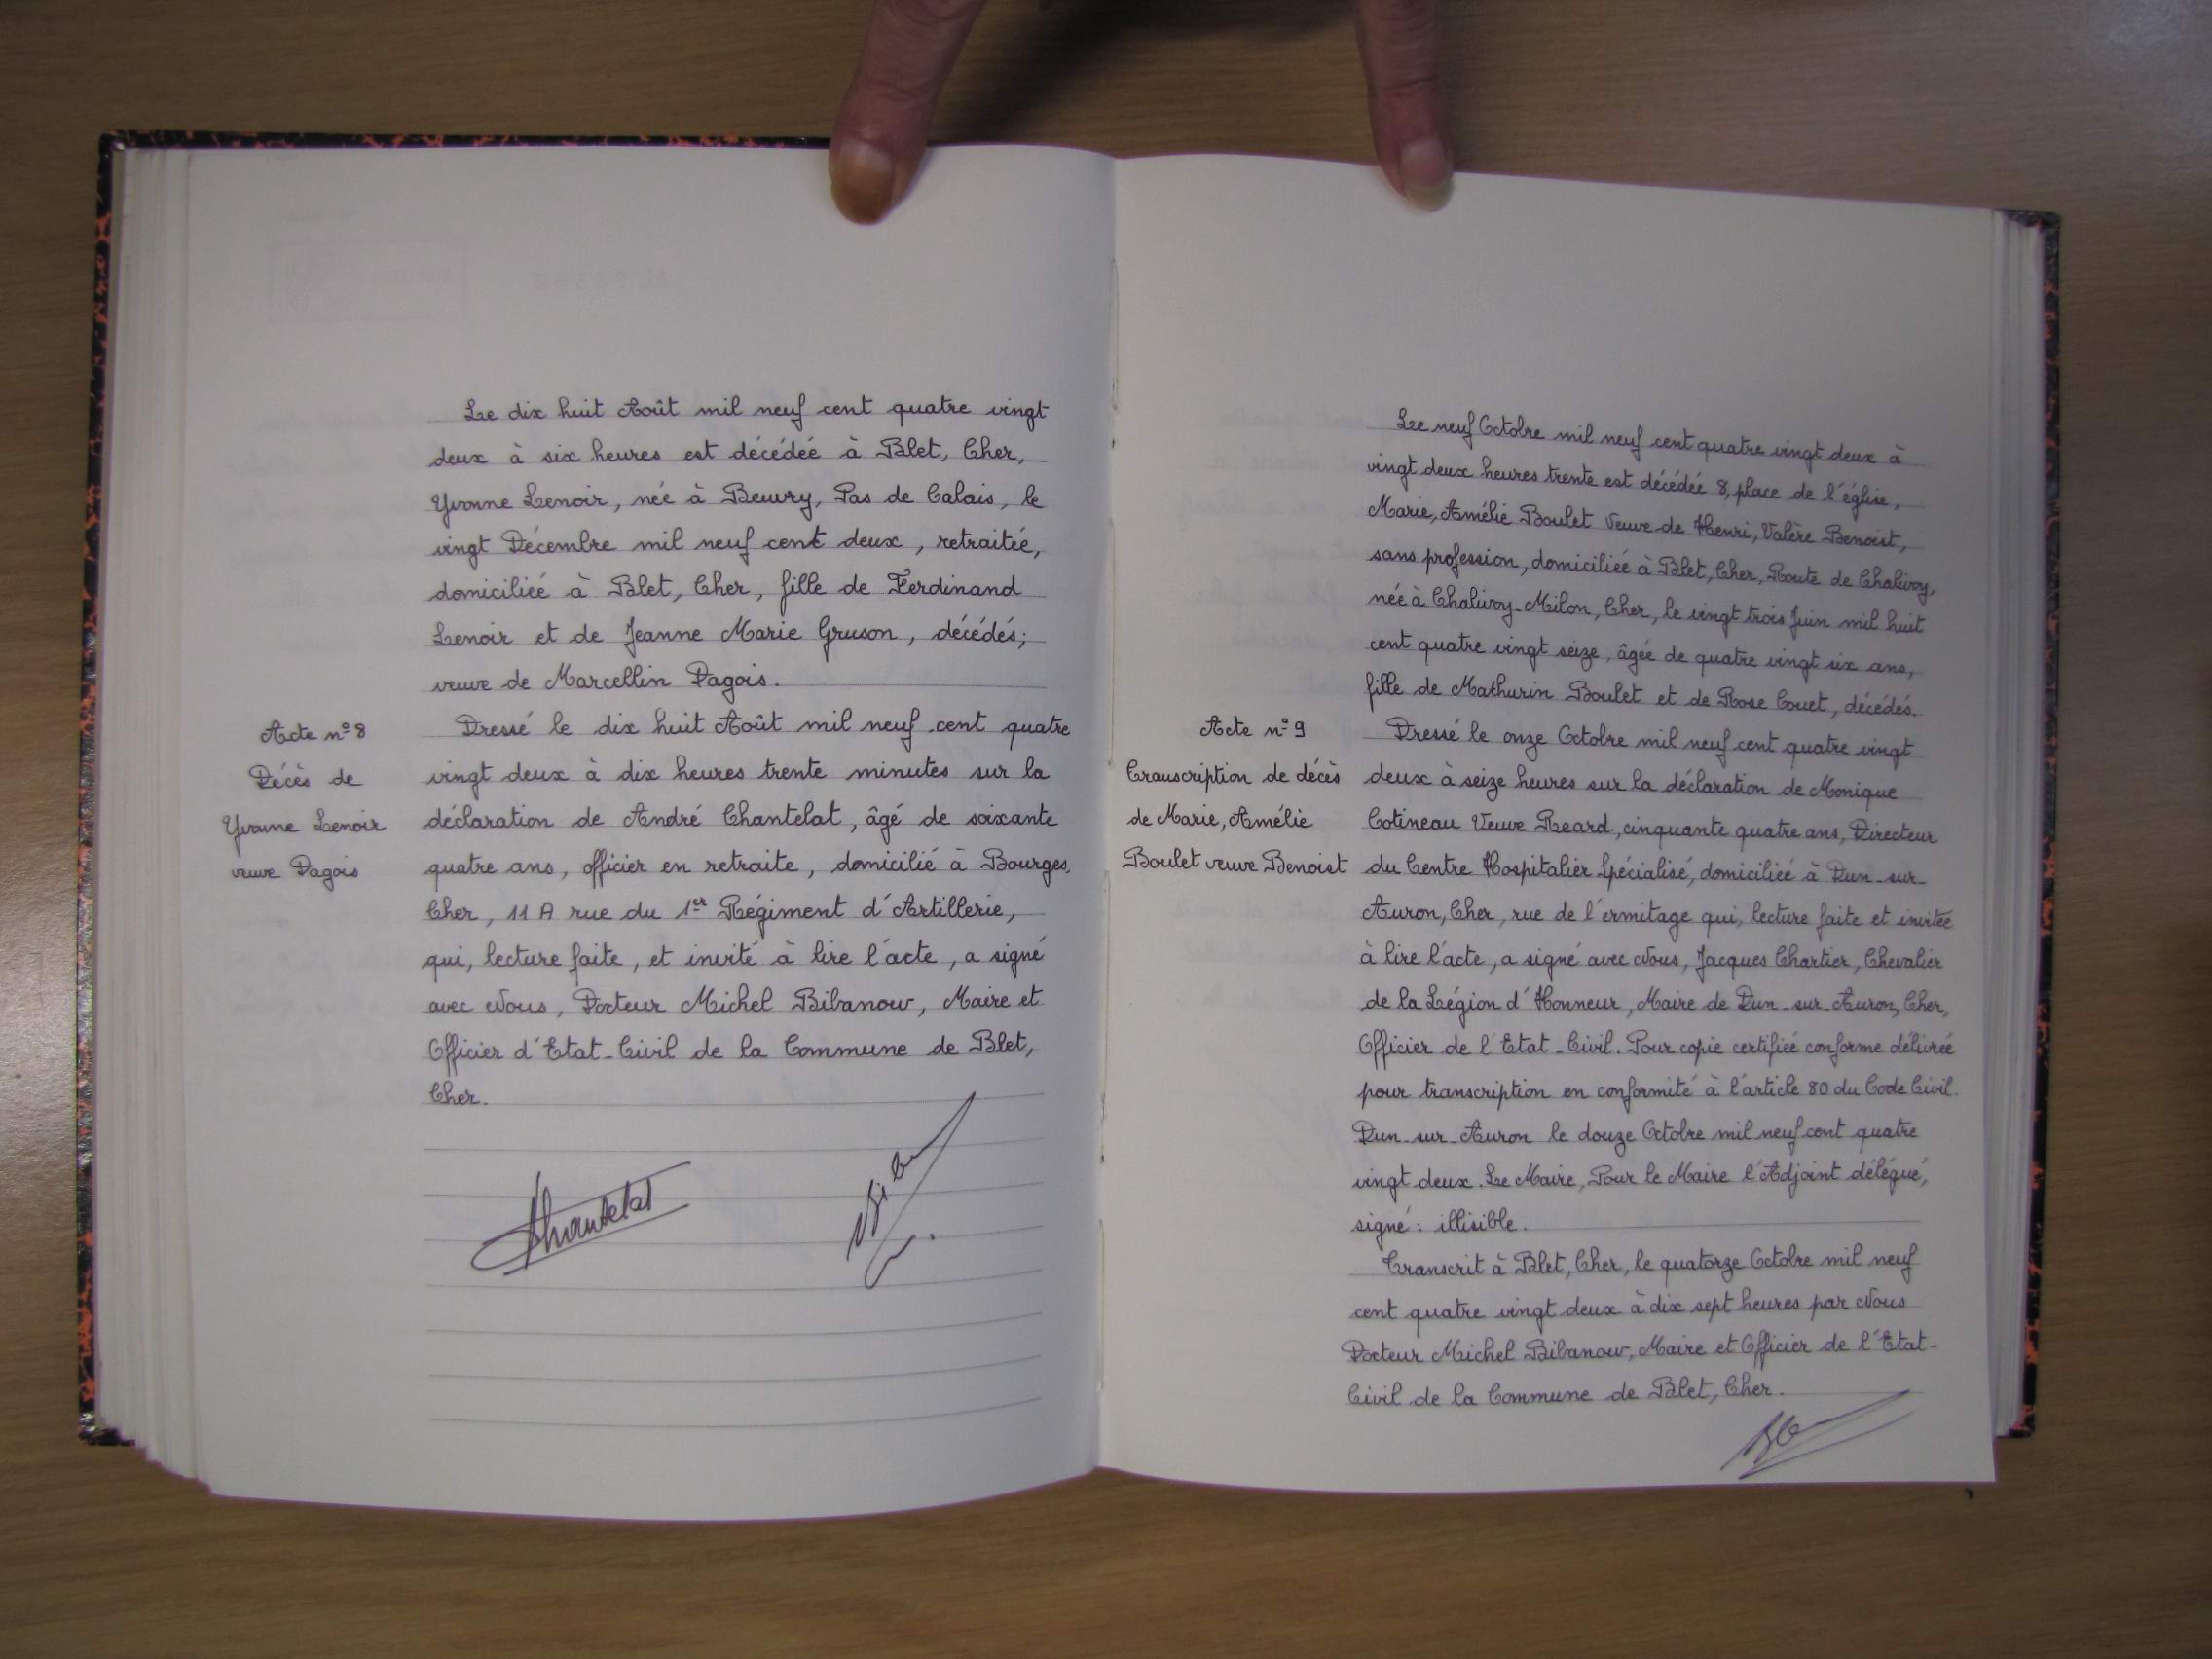 Le dix huit Août mil neuf cent quatre vingt
deux à six heures est décédée à Blet, Cher,
Yvonne Lenoir, née à Beuvry, Pas de Calais, le
vingt Décembre mil neuf cent deux, retraitée,
domiciliée à Blet, Cher, fille de Ferdinand
Lenoir et de Jeanne Marie Gruson, décédés;
veuve de Marcellin Dagois.
Acte n° 8
Décès de
Yvonne Lenoir
veuve Dagois
Dressé le dix huit Août mil neuf cent quatre
vingt deux à dix heures trente minutes sur la
déclaration de André Chantelat, âgé de soixante
quatre ans, officier en retraite, domicilié à Bourges,
Cher, 11 A rue du 1er Régiment d'Artillerie,
qui, lecture faite, et invité à lire l'acte, a signé
avec Nous, Docteur Michel Bibanow, Maire et
Officier d'Etat-Civil de la Commune de Blet,
Cher.
Chantelat
Le neuf Octobre mil neuf cent quatre vingt deux à
vingt deux heures trente est décédée 8, place de l'église,
Marie, Amélie Boulet Veuve de Henri, Valère Benoist,
sans profession, domiciliée à Blet, Cher, Route de Chalivoy,
née à Chalivoy-Milon, Cher, le vingt trois Juin mil huit
cent quatre vingt seize, âgée de quatre vingt six ans,
fille de Mathurin Boulet et de Rose Couet, décédés.
Acte n° 9
Transcription de décès
de Marie, Amélie
Boulet veuve Benoist
Dressé le onze Octobre mil neuf cent quatre vingt
deux à seize heures sur la déclaration de Monique
Cotineau Veuve Reard, cinquante quatre ans, Directeur
du Centre Hospitalier Spécialisé, domiciliée à Dun-sur-
Auron, Cher, rue de l'ermitage qui, lecture faite et invitée
à lire l'acte, a signé avec Nous, Jacques Chartier, Chevalier
de la Légion d'Honneur, Maire de Dun-sur-Auron, Cher,
Officier de l'Etat-Civil. Pour copie certifiée conforme délivrée
pour transcription en conformité à l'article 80 du Code Civil.
Dun-sur-Auron le douze Octobre mil neuf cent quatre
vingt deux. Le Maire, Pour le Maire l'Adjoint délégué,
signé : illisible.
Transcrit à Blet, Cher, le quatorze Octobre mil neuf
cent quatre vingt deux à dix sept heures par Nous
Docteur Michel Bibanow, Maire et Officier de l'Etat-
Civil de la Commune de Blet, Cher.